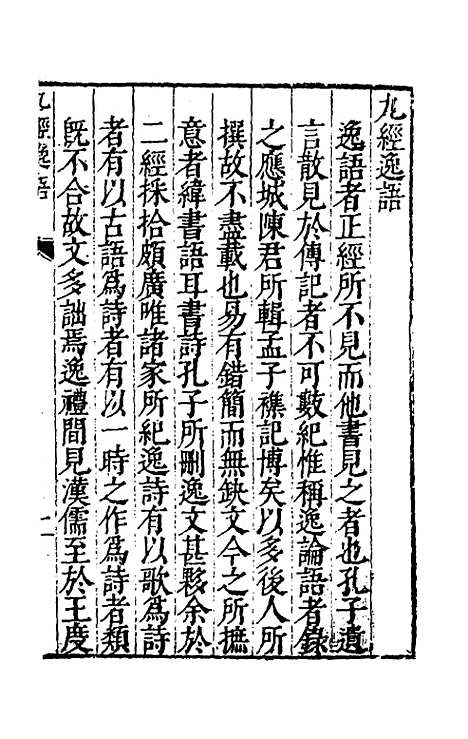 九經逸語
逸語者正經所不見而他書見之者也孔子遺
言散見於傳記者不可數紀惟稱逸論語者錄
之應城陳君所輯孟子襍記博矣以多後人所
撰故不盡載也易有錯簡而無缺文今之所摭
意者緯書語耳書詩孔子所刪逸文甚夥余於
二經採拾頗廣唯諸家所紀逸詩有以歌為詩
者有以古語為詩者有以一時之作為詩者類
旣不合故文多詘焉逸禮間見漢儒至於王度
九經逸語
一